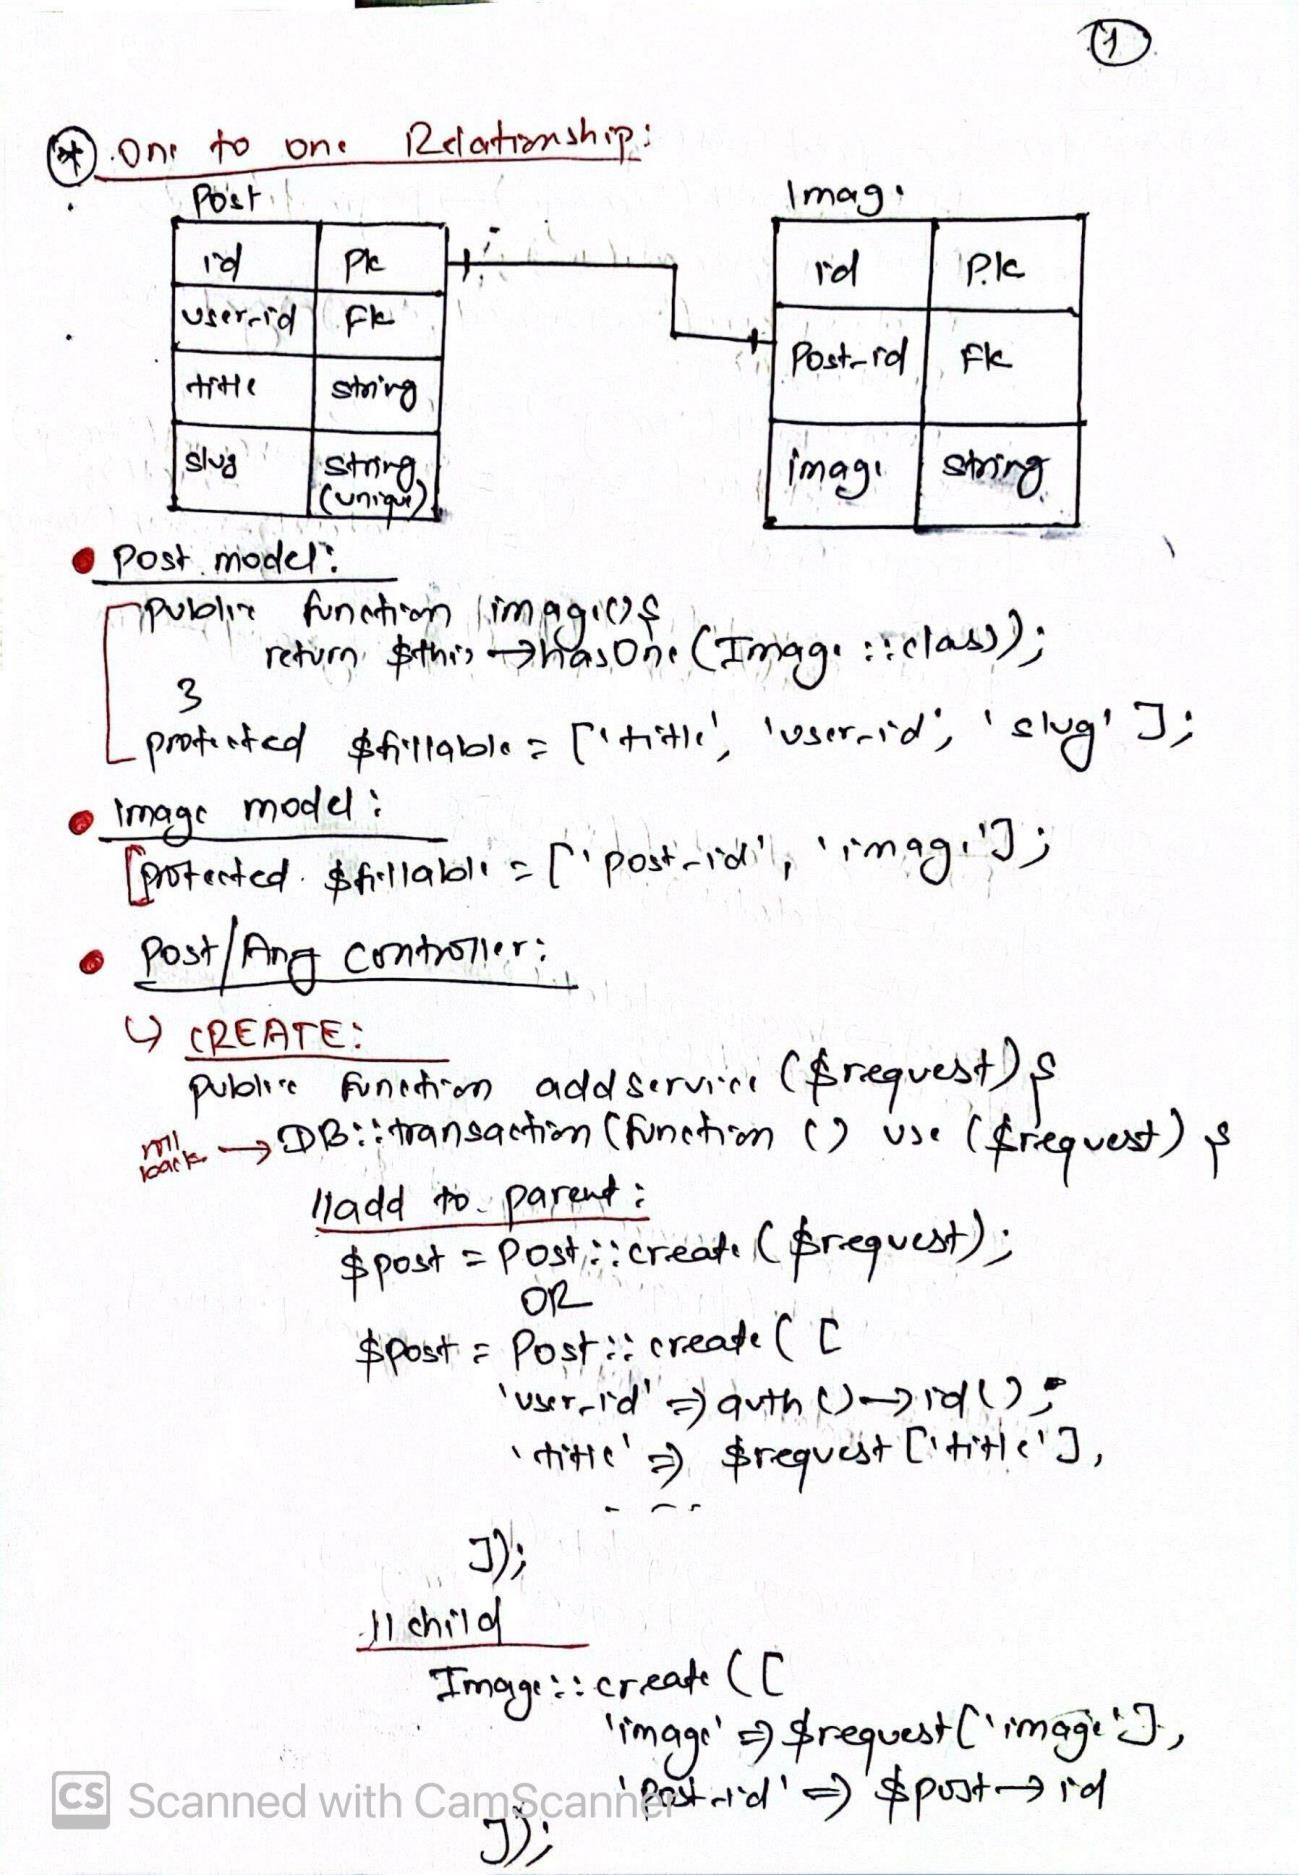 1
* One to one Relationship:
Post
Image
id PK
user_id FK
title string
slug string (unique)
id P.K
Post_id FK
image string
Post model:
public function image(){
return $this->hasOne(Image::class);
}
protected $fillable = ['title', 'user_id', 'slug'];
Image model:
protected $fillable = ['post_id', 'image'];
Post/Any controller:
↳ CREATE:
public function addservice($request){
roll back → DB::transaction(function () use ($request) {
//add to parent:
$post = Post::create($request);
OR
$post = Post::create([
'user_id' => auth()->id();
'title' => $request['title'],
- - - -
]);
//child
Image::create([
'image' => $request['image'],
'Post_id' => $post->id
]);
CS Scanned with CamScanner